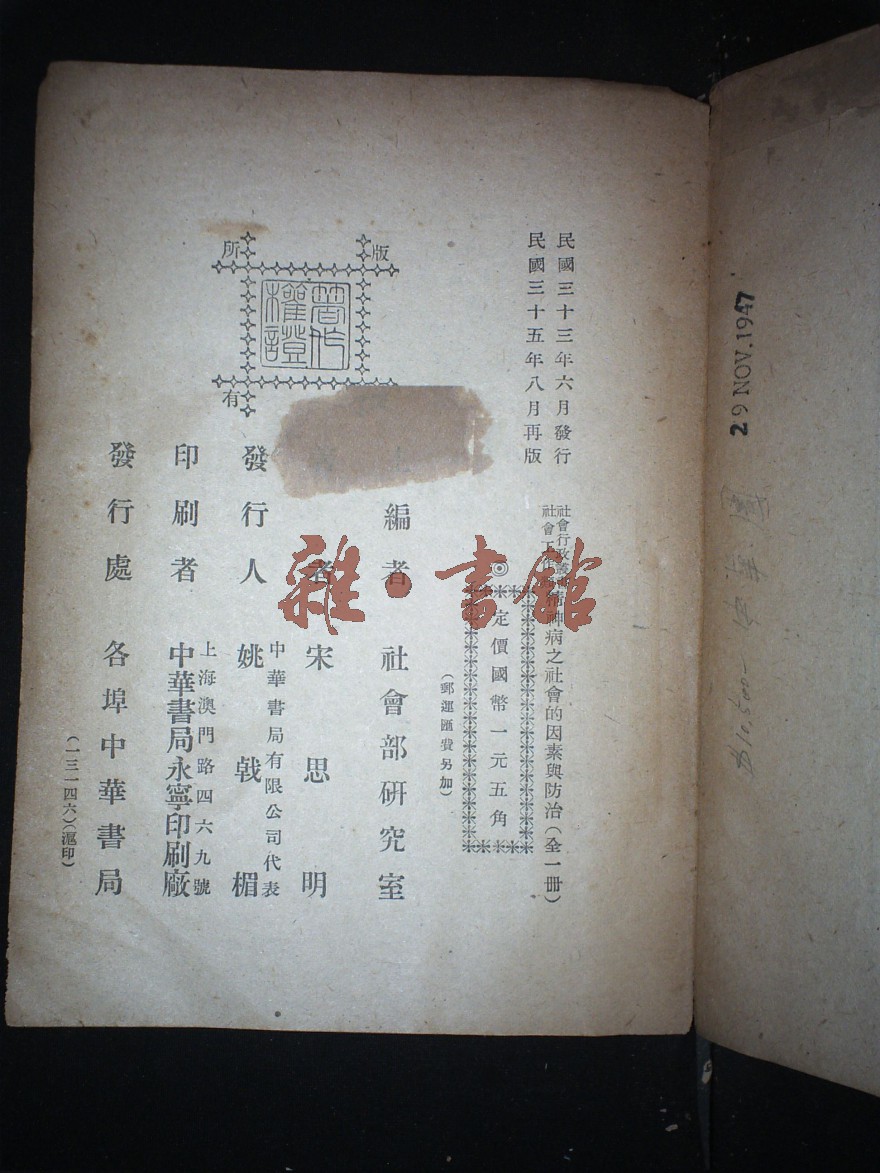 民國三十三年六月發行
民國三十五年八月再版
社會行政叢書
社會
精神病之社會的因素與防治(全一冊)
◎定價國幣一元五角
(郵運匯費另加)
編者 社會部研究室
者 宋思明
發行人 姚戟楣
中華書局有限公司代表
印刷者 中華書局永寧印刷廠
上海澳門路四六九號
發行處 各埠中華書局
(一三一四六)(滬印)
版
所
有
著作權證
雜·書館
29 NOV. 1947
$10,500-